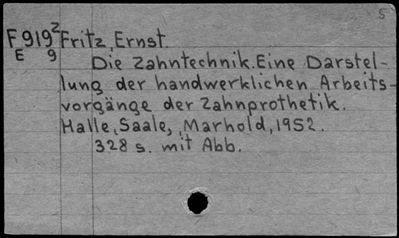 5
F919² Fritz, Ernst.
E 9 Die Zahntechnik. Eine Darstel-
lung der handwerklichen Arbeits-
vorgänge der Zahnprothetik.
Halle, Saale, Marhold, 1952.
328 s. mit Abb.